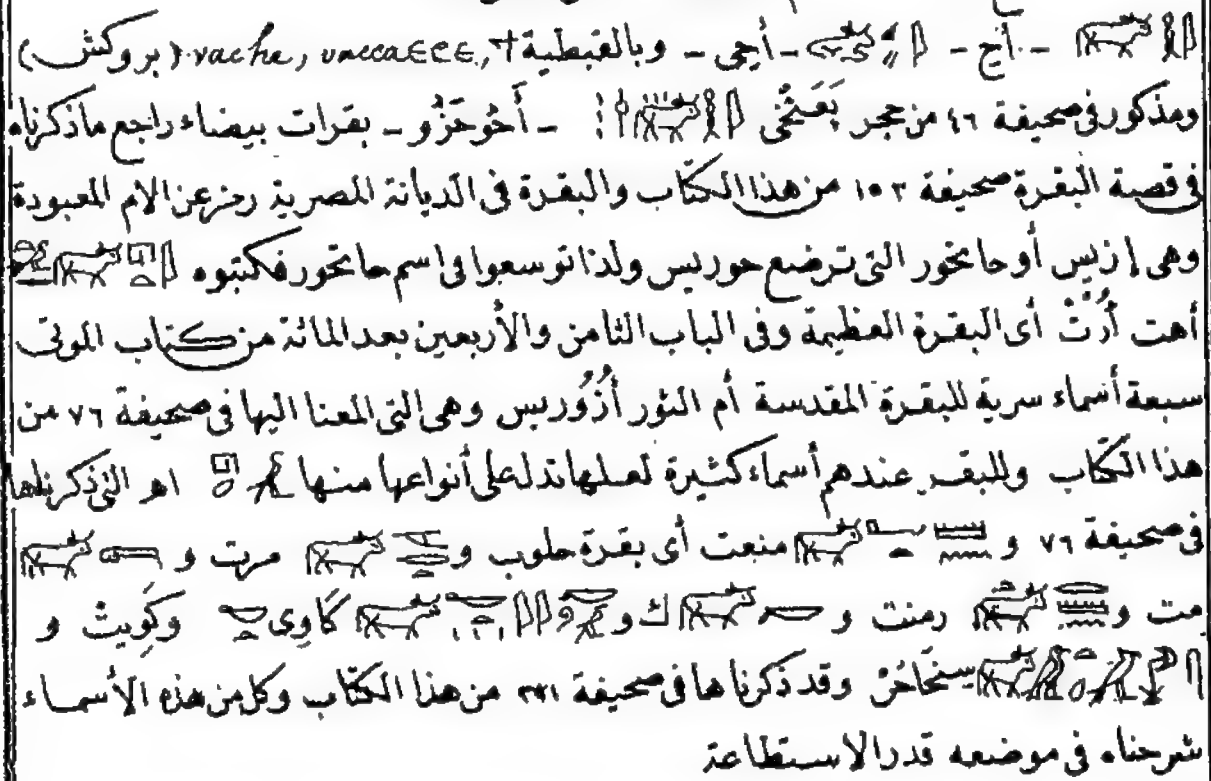 - أج - - أجى - وبالقبطية vache, vaccaeee, † (بروكش)
ومذكور فى صحيفة ٤٦ من حجر بَعَنْخى - أَحُوحَزُو - بقرات بيضاء راجع ماذكرناه
فى قصة البقرة صحيفة ١٥٢ من هذا الكتاب والبقرة فى الديانة المصرية رمز عن الام المعبودة
وهى إزيس أو حاتحور التى ترضع حوريس ولذا توسعوا فى اسم حاتحور فكتبوه
أهت أُرْتْ أى البقرة العظيمة وفى الباب الثامن والأربعين بعد المائة من كتاب الموتى
سبعة أسماء سرية للبقرة المقدسة أم الثور أُزُوريس وهى التى المعنا اليها فى صحيفة ٧٦ من
هذا الكتاب وللبقر عندهم أسماء كثيرة لعلها تدل على أنواعها منها اهر التى ذكرناها
فى صحيفة ٧٦ و منعت أى بقرة حلوب و مرت و
مت و رمنت و ك و كَاوِى وكَوِيتْ و
سِنْحَاحُرْ وقد ذكرناها فى صحيفة من هذا الكتاب وكل من هذه الأسماء
شرحناه فى موضعه قدر الاستطاعة